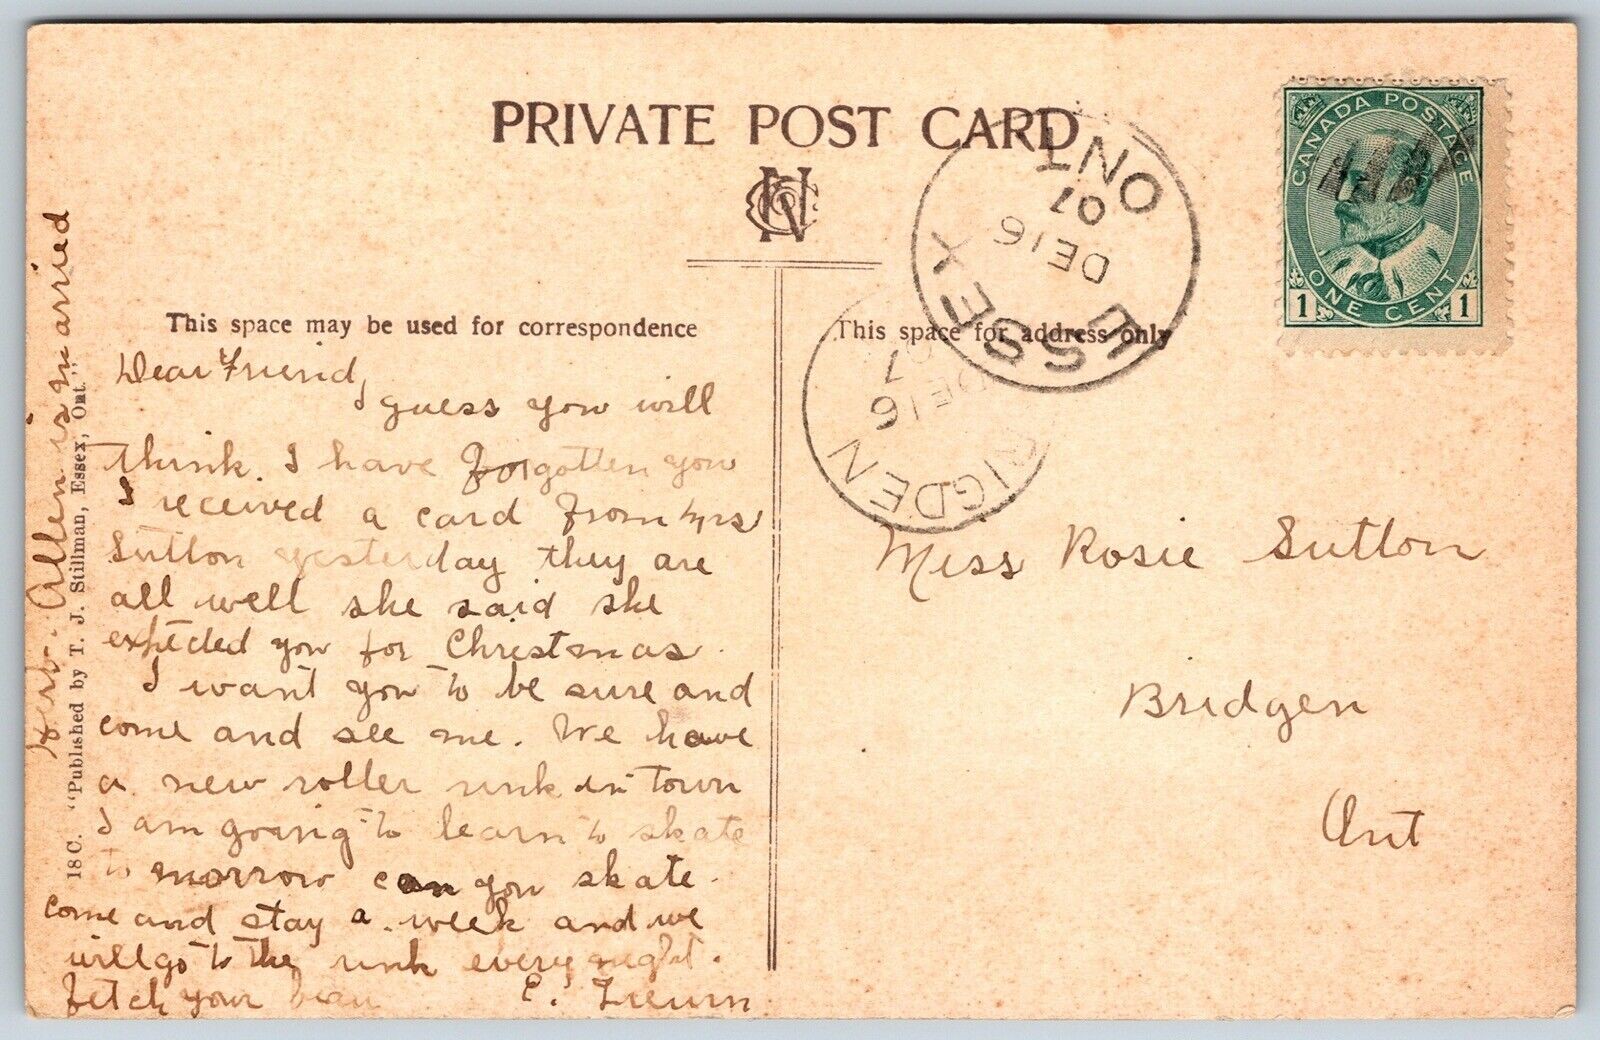 PRIVATE POST CARD
This space may be used for correspondence
This space for address only
CANADA POSTAGE
ONE CENT
1 1
ESSEX
ONT
DE 16
07
BRIGDEN
DE 16
07
Dear Friend,
guess you will
think I have forgotten you
I received a card from Mrs
Sutton yesterday they are
all well she said she
expected you for Christmas.
I want you to be sure and
come and see me. We have
a new roller rink in town
I am going to learn to skate
to morrow can you skate.
come and stay a week and we
will go to the rink every night.
fetch your beau E.
Herb. Allen is married
18 C. "Published by T. J. Stillman, Essex, Ont."
Miss Rosie Sutton
Bridgen
Ont